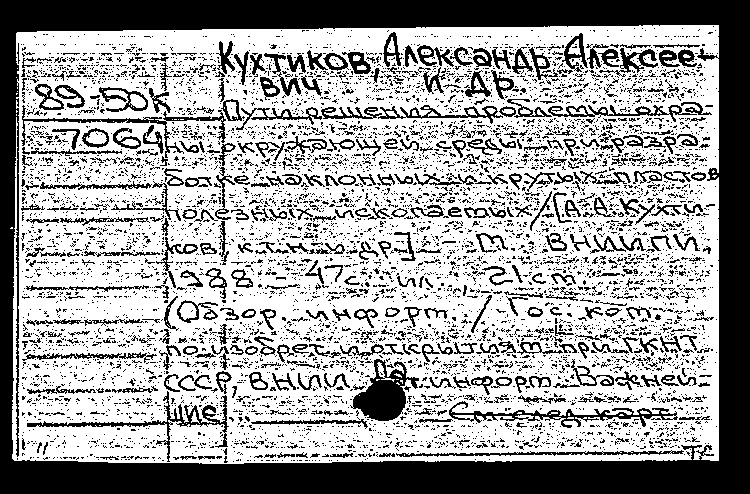 Кухтиков, Александр Алексее-
вич. и др.
89-50к
Пути решения проблемы охра-
7064
ны окружающей среды при разра-
ботке наклонных и крутых пластов
полезных ископаемых / [А. А. Кухти-
ков, к.т.н. и др.] - М.: ВНИИПИ,
1988. - 47 с.: ил.; 21 см. -
(Обзор. информ. / Гос. ком.
по изобрет. и открытиям при ГКНТ
СССР, ВНИИ Па т. информ. Важней-
шие
См. след. карт.